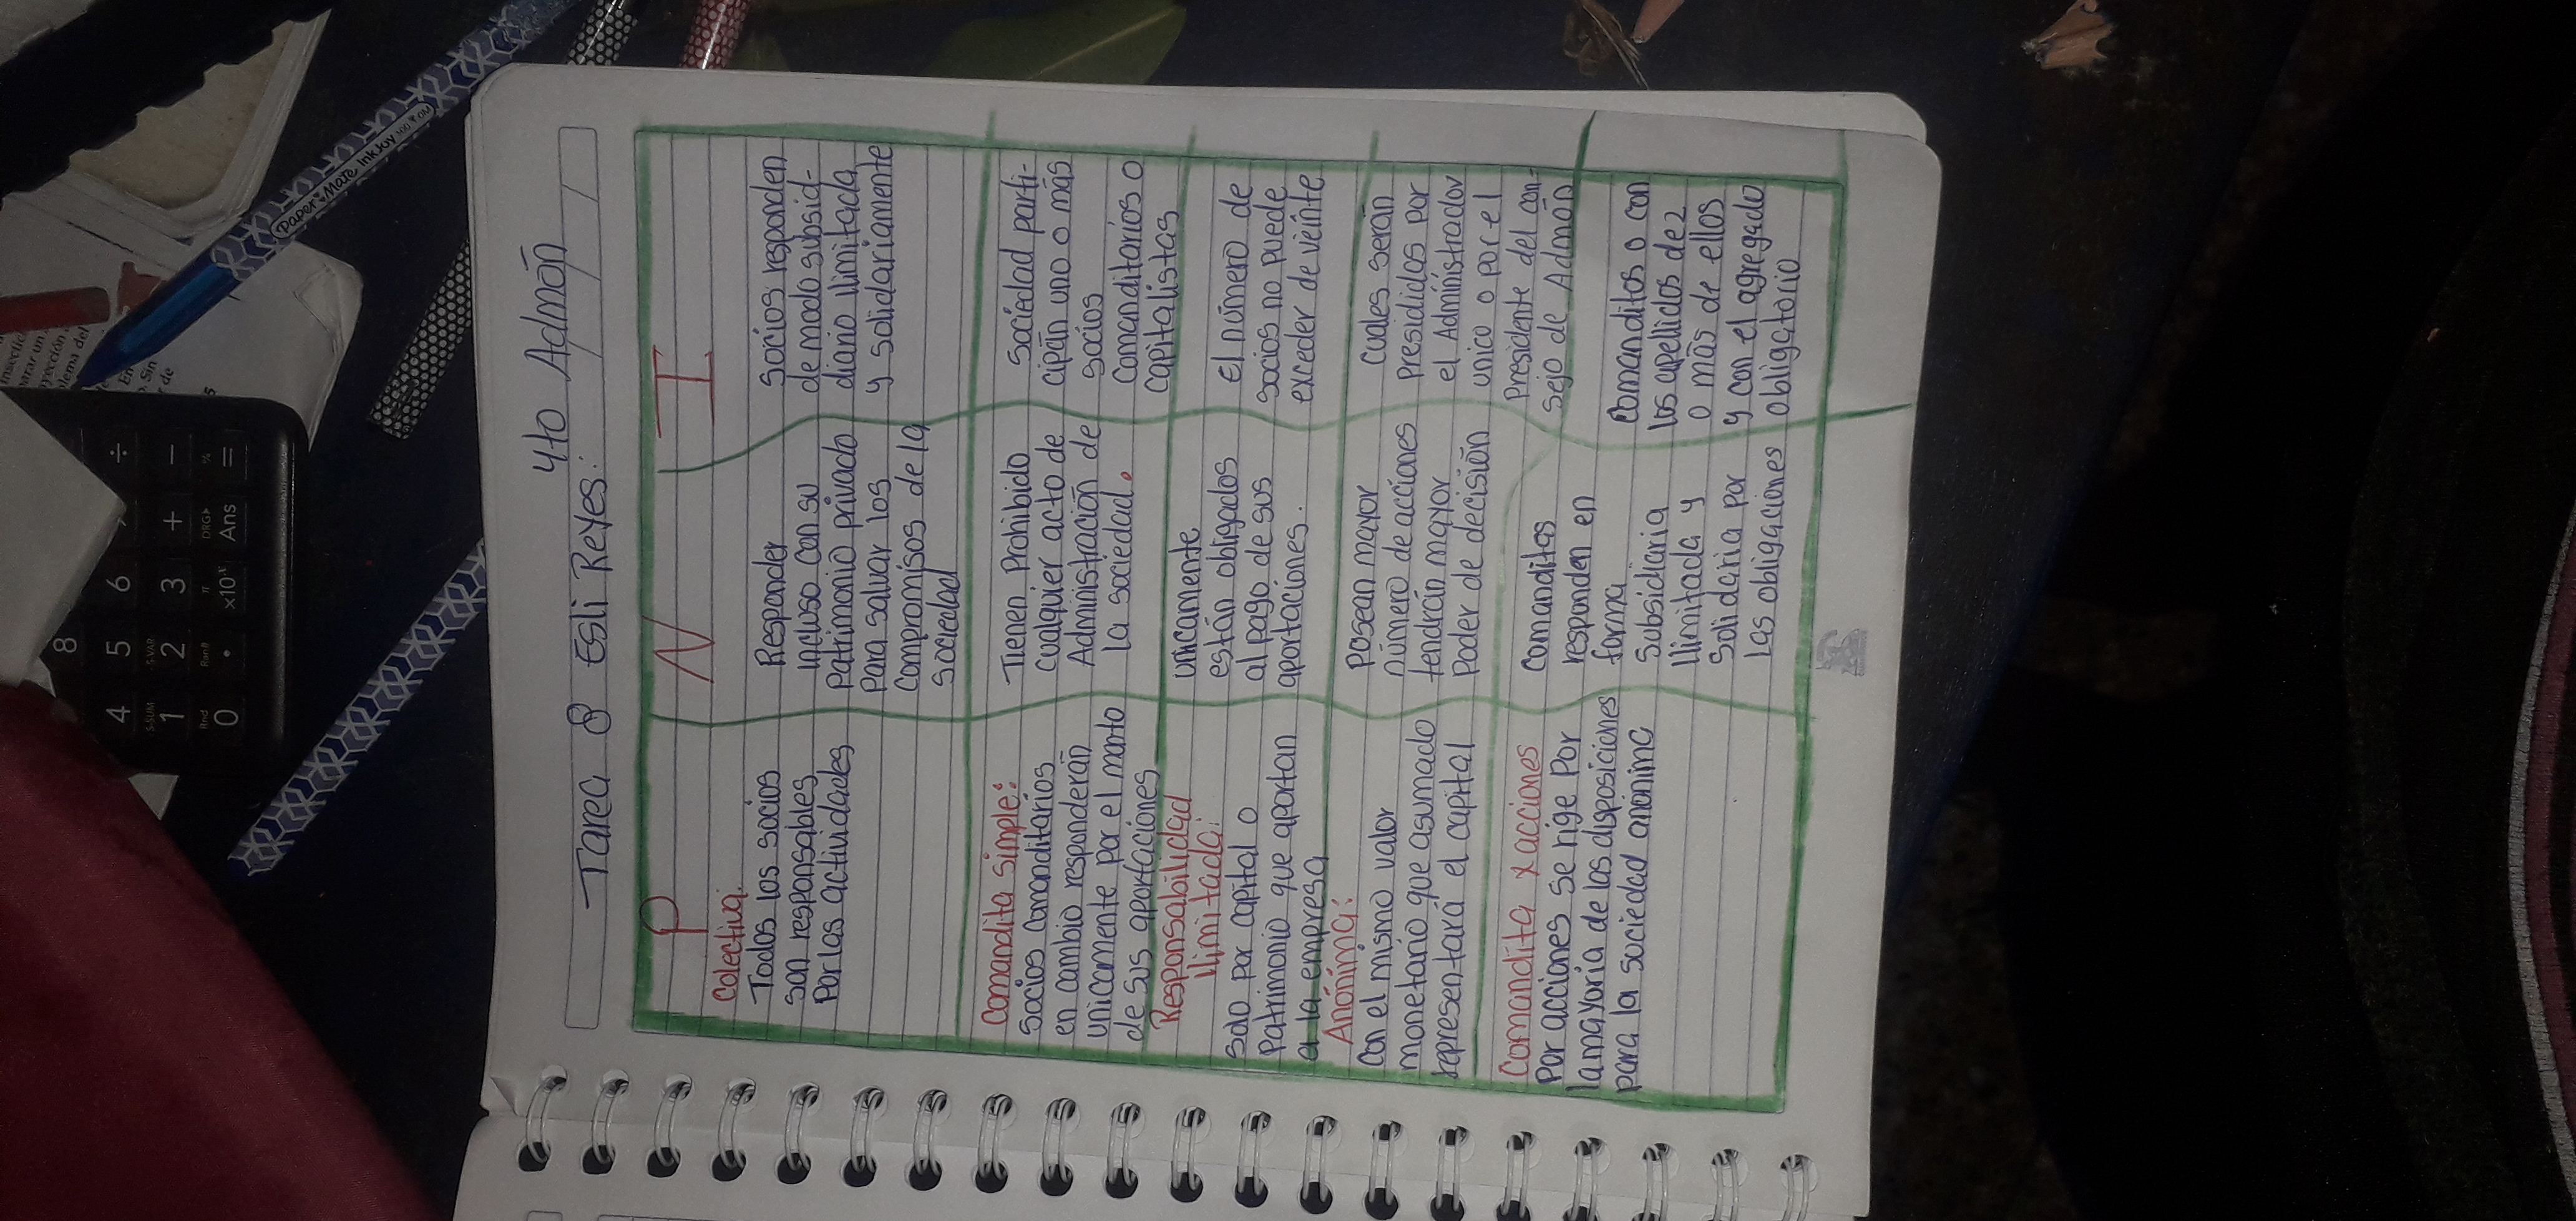 Tarea 8 Esli Reyes: 4to Admón
P
Colectiva:
Todos los socios
son responsables
Por las actividades
N
Responder
incluso con su
patrimonio privado
Para salvar los
compromisos de la
sociedad
I
socios responden
de modo subsid-
diario ilimitada
y solidariamente
Comandita simple:
socios comanditarios
en cambio responderán
unicamente por el monto
de sus aportaciones
Tienen Prohibido
cualquier acto de
Administración de
la sociedad.
sociedad parti-
cipán uno o más
socios
comanditarios o
capitalistas
Responsabilidad
Ilimitada:
solo por capital o
Patrimonio que aportan
a la empresa
unicamente
están obligados
al pago de sus
aportaciones.
El número de
socios no puede
exceder de veinte
Anónima:
con el mismo valor
monetario que asumado
representará el capital
Posean mayor
número de acciones
tendrán mayor
Poder de decisión
cuales serán
Presididos por
el Administrador
unico o por el
Presidente del con-
sejo de Admón
Comandita x acciones
Por acciones se rige Por
la mayoría de las disposiciones
para la sociedad anónima
comanditas
responden en
forma
subsidiaria
Ilimitada y
solidaria por
las obligaciones
comanditos o con
los apellidos de 2
o más de ellos
y con el agregado
obligatorio
Paper Mate InkJoy 300 RT 0M
8
4 5 6 ÷
1 2 3 + −
0 . x10ˣ Ans =
S-SUM S-VAR
Rnd Ran# π DRG▸ %